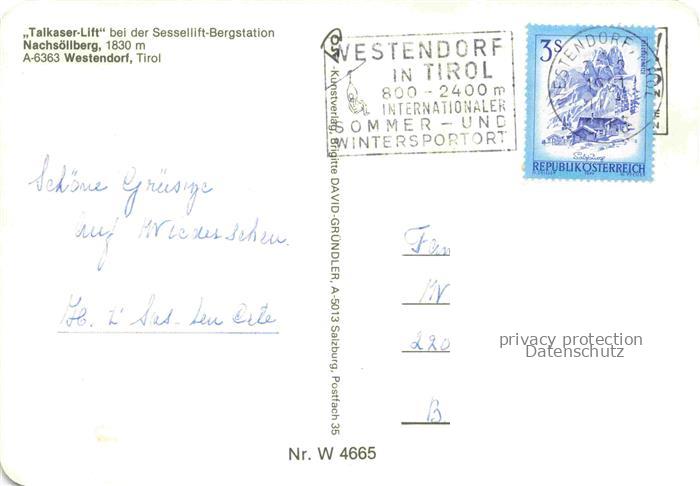 „Talkaser-Lift“ bei der Sessellift-Bergstation
Nachsöllberg, 1830 m
A-6363 Westendorf, Tirol
WESTENDORF
IN TIROL
800 - 2400 m
INTERNATIONALER
SOMMER - UND
WINTERSPORTORT
3 S
Salzburg
REPUBLIK ÖSTERREICH
Schöne Grüsse
auf Wiedersehen.
-Kunstverlag, Brigitte DAVID-GRÜNDLER, A-5013 Salzburg, Postfach 35
220
B
privacy protection
Datenschutz
Nr. W 4665